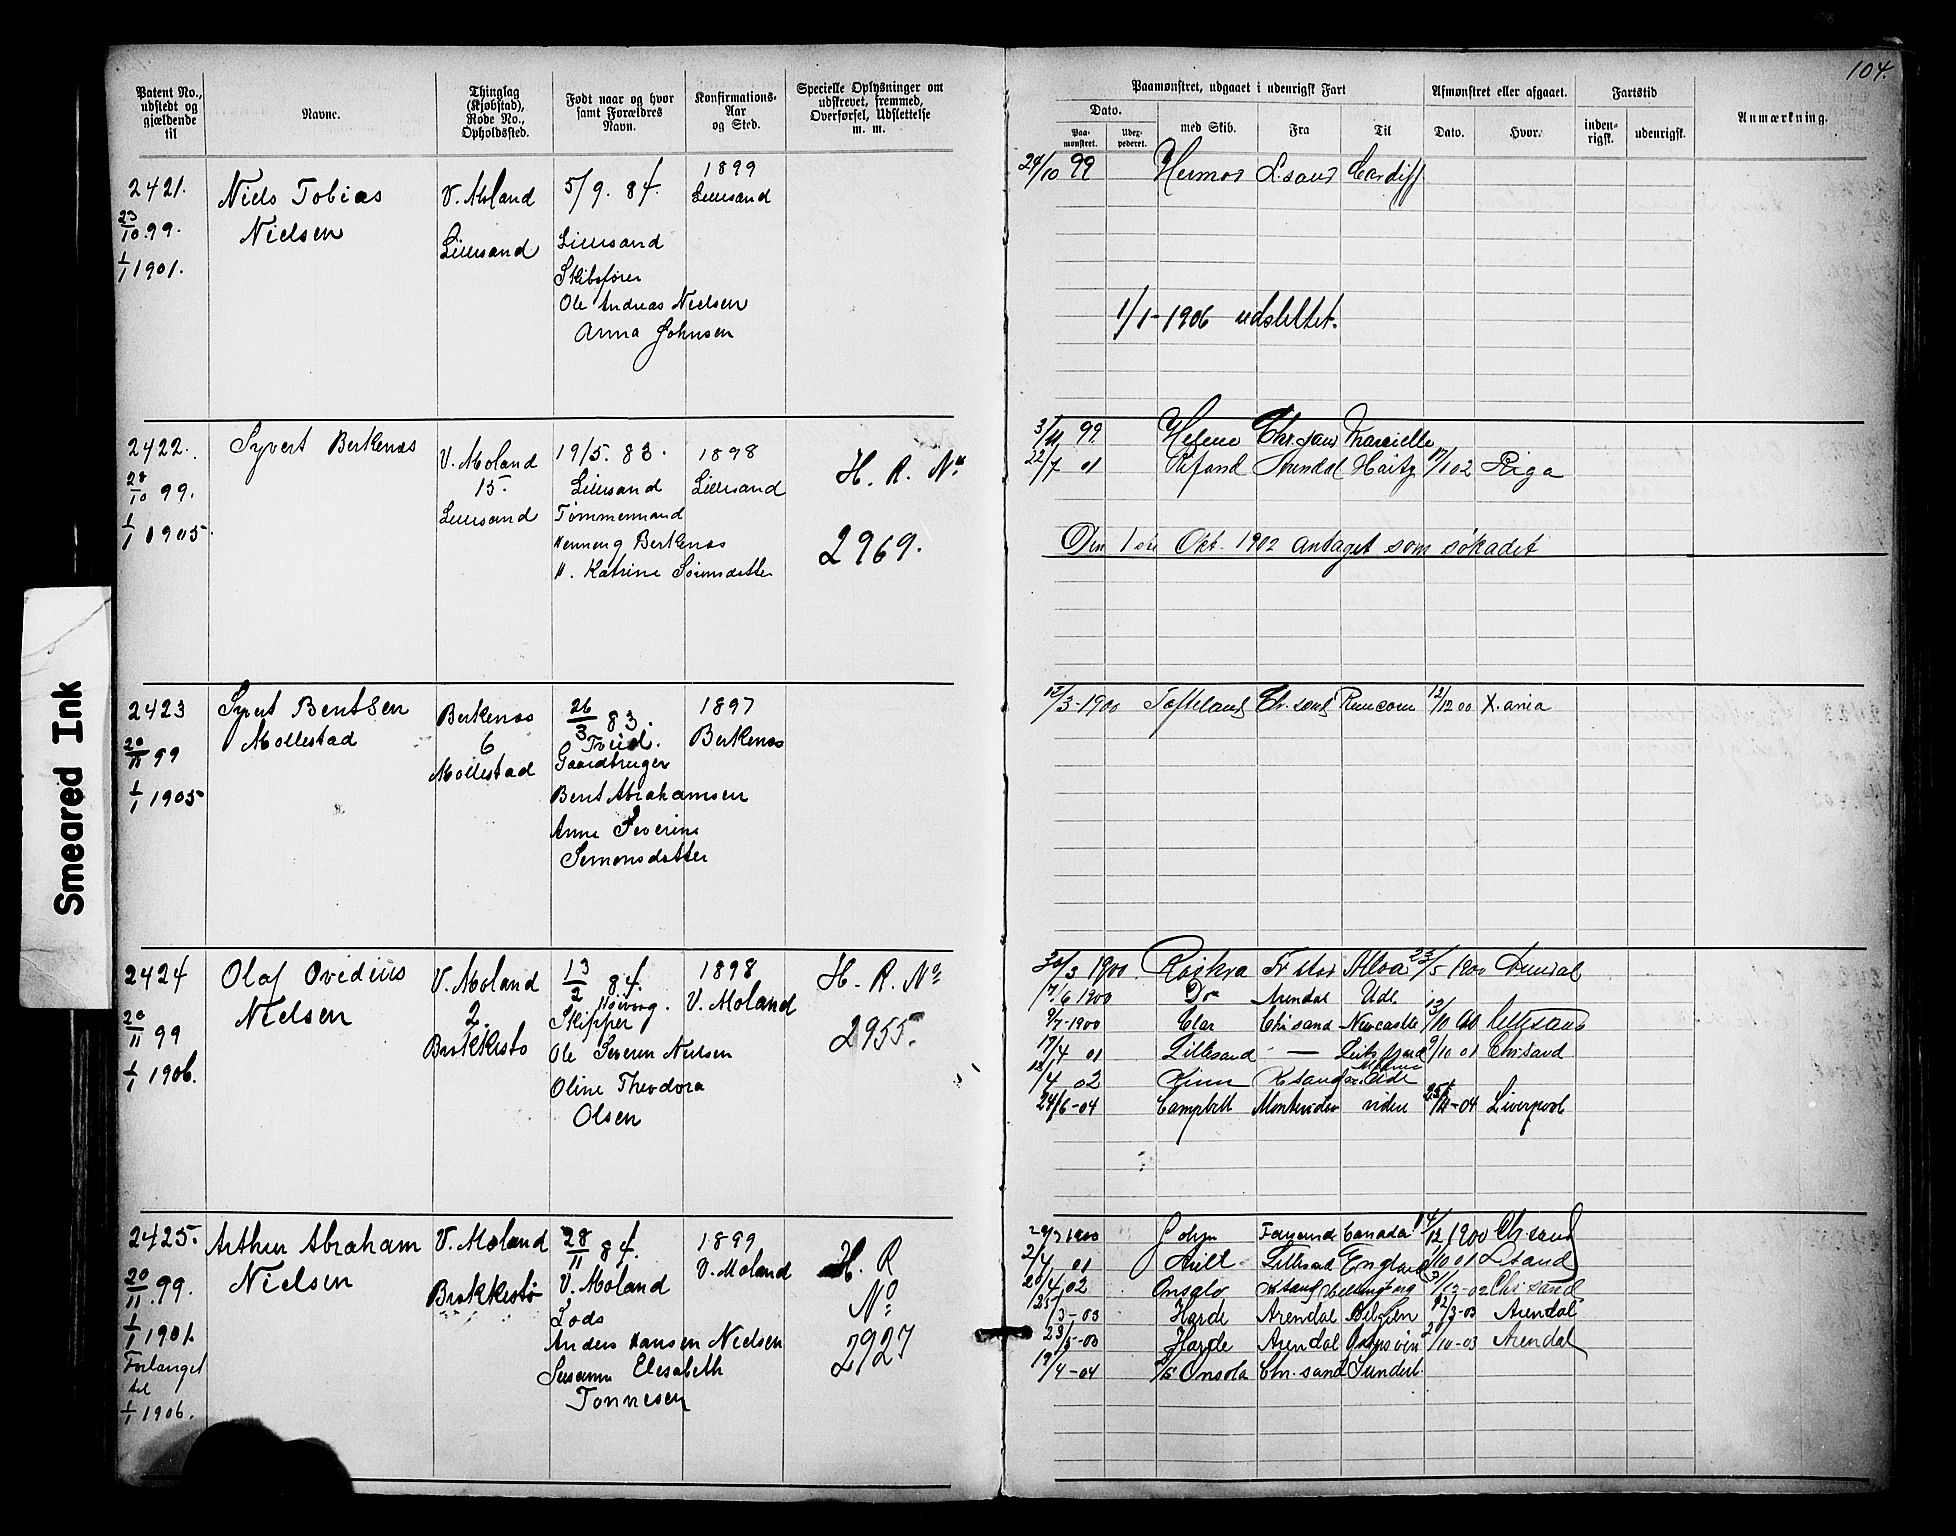 104.
Patent No., udstedt og gjældende til
Navne.
Thinglag (Kjøbstad), Rode No., Opholdssted.
Født naar og hvor samt Forældres Navn.
Konfirmations-Aar og Sted.
Specielle Oplysninger om udskrevet, fremmed, Overførsel, Udslettelse m. m.
Paamønstret, udgaaet i udenrigsk Fart
Dato.
Paa-mønstret.
Udex-pederet.
med Skib.
Fra
Til
Afmønstret eller afgaaet.
Dato.
Hvor.
Fartstid
inden-rigsk.
udenrigsk.
Anmærkning.
2421.
23/10 99.
1/1 1901.
Niels Tobias
Nielsen
V. Moland
Lillesand
5/9. 84.
Lillesand
Skibsfører
Ole Andreas Nielsen
Anna Johnsen
1899
Lillesand
24/10 99 Hermod L.sand Cardiff
1/1-1906 udslettet.
2422.
28/10 99.
1/1 1905.
Syvert Berkenæs
V. Moland
15.
Lillesand
19/5. 83.
Lillesand
Tømmermand
Henning Berkenæs
Katrine Sørensdatter
1898
Lillesand
H. R. No
2969.
3/11 99 Helene Chr.sand
22/7 01 Arendal 02 Riga
Den 1ste Okt. 1902 antaget som søkadet
2423
99
1/1 1905
Syvert Bentsen
Mollestad
Berkenæs
6
Mollestad
26/3 83.
Gaardbruger
Bent Abrahamsen
Anne Severine
Simonsdatter
1897
Berkenæs
12/3-1900 Tofteland Ch.sand Runcorn 12/12 00 X.ania
2424
20/11 99
1/1 1906.
Olaf Ovedius
Nielsen
V. Moland
2.
Brækkestø
13/2 84.
Skipper
Ole Severin Nielsen
Oline Theodora
Olsen
1898
V. Moland
H. R. No
2955.
30/3 1900 Alloa 23/5 1900 Arendal
17/6 1900 Do Arendal Udl
9/7-1900 Clar Chr sand Newcastle 13/10 00 Lillesand
17/4 01 Lillesand — 9/10 01 Chr sand
18/4 02
24/6-04 Campbell Montevideo videre 04 Liverpool
2425.
20/11. 99.
1/1 1901.
Forlænget
til
1/1 1906.
Arthur Abraham
Nielsen
V. Moland
Brækkestø
28/11 84.
V. Moland
Lods
Anders Hansen Nielsen
Susanne Elisabeth
Tønnesen
1899
V. Moland
H. R
No
2927
1900 Canada 14/12 1900 Chr sand
2/4 01 Lillesand England /10 01 L.sand
20/4 02 Onsalo 02 Chr sand
25/3-03 Harde Arendal Belgien 12/3-03 Arendal
23/5-03 Harde Arendal /10-03 Arendal
19/4-04 Onsola Chr. sand Sunderl
Smeared Ink